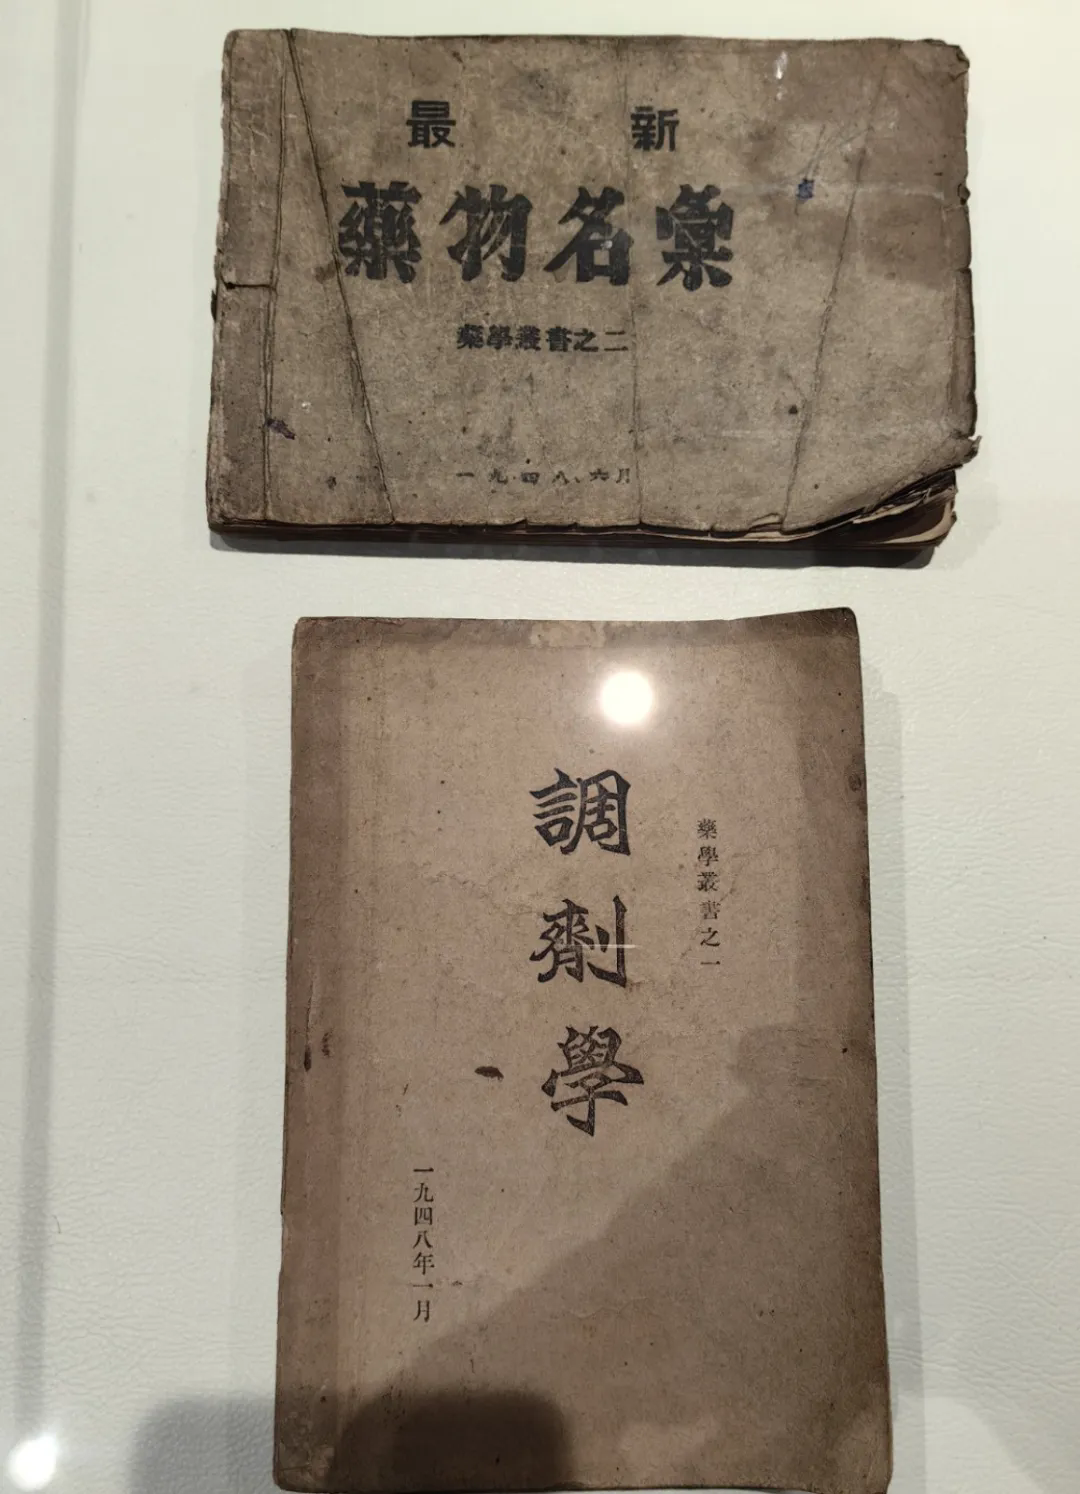 最新
藥物名彙
藥學叢書之二
一九四八、六月
調劑學
藥學叢書之一
一九四八年一月